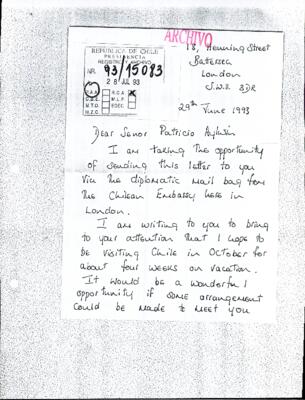 ARCHIVO
18, Henning Street
Battersea
London
S.W.11 3DR
REPUBLICA DE CHILE
PRESIDENCIA
REGISTRO Y ARCHIVO
NR. 93/15083
28 JUL 93
P.A.A. R.C.A. X
C.B.E. M.L.P.
M.T.O. EDEC
M.Z.C.
29th June 1993
Dear Senor Patricio Aylwin
I am taking the opportunity
of sending this letter to you
via the diplomatic mail bag from
the Chilean Embassy here in
London.
I am writing to you to bring
to your attention that I hope to
be visiting Chile in October for
about four weeks on vacation.
It would be a wonderful
opportunity if some arrangement
could be made to meet you